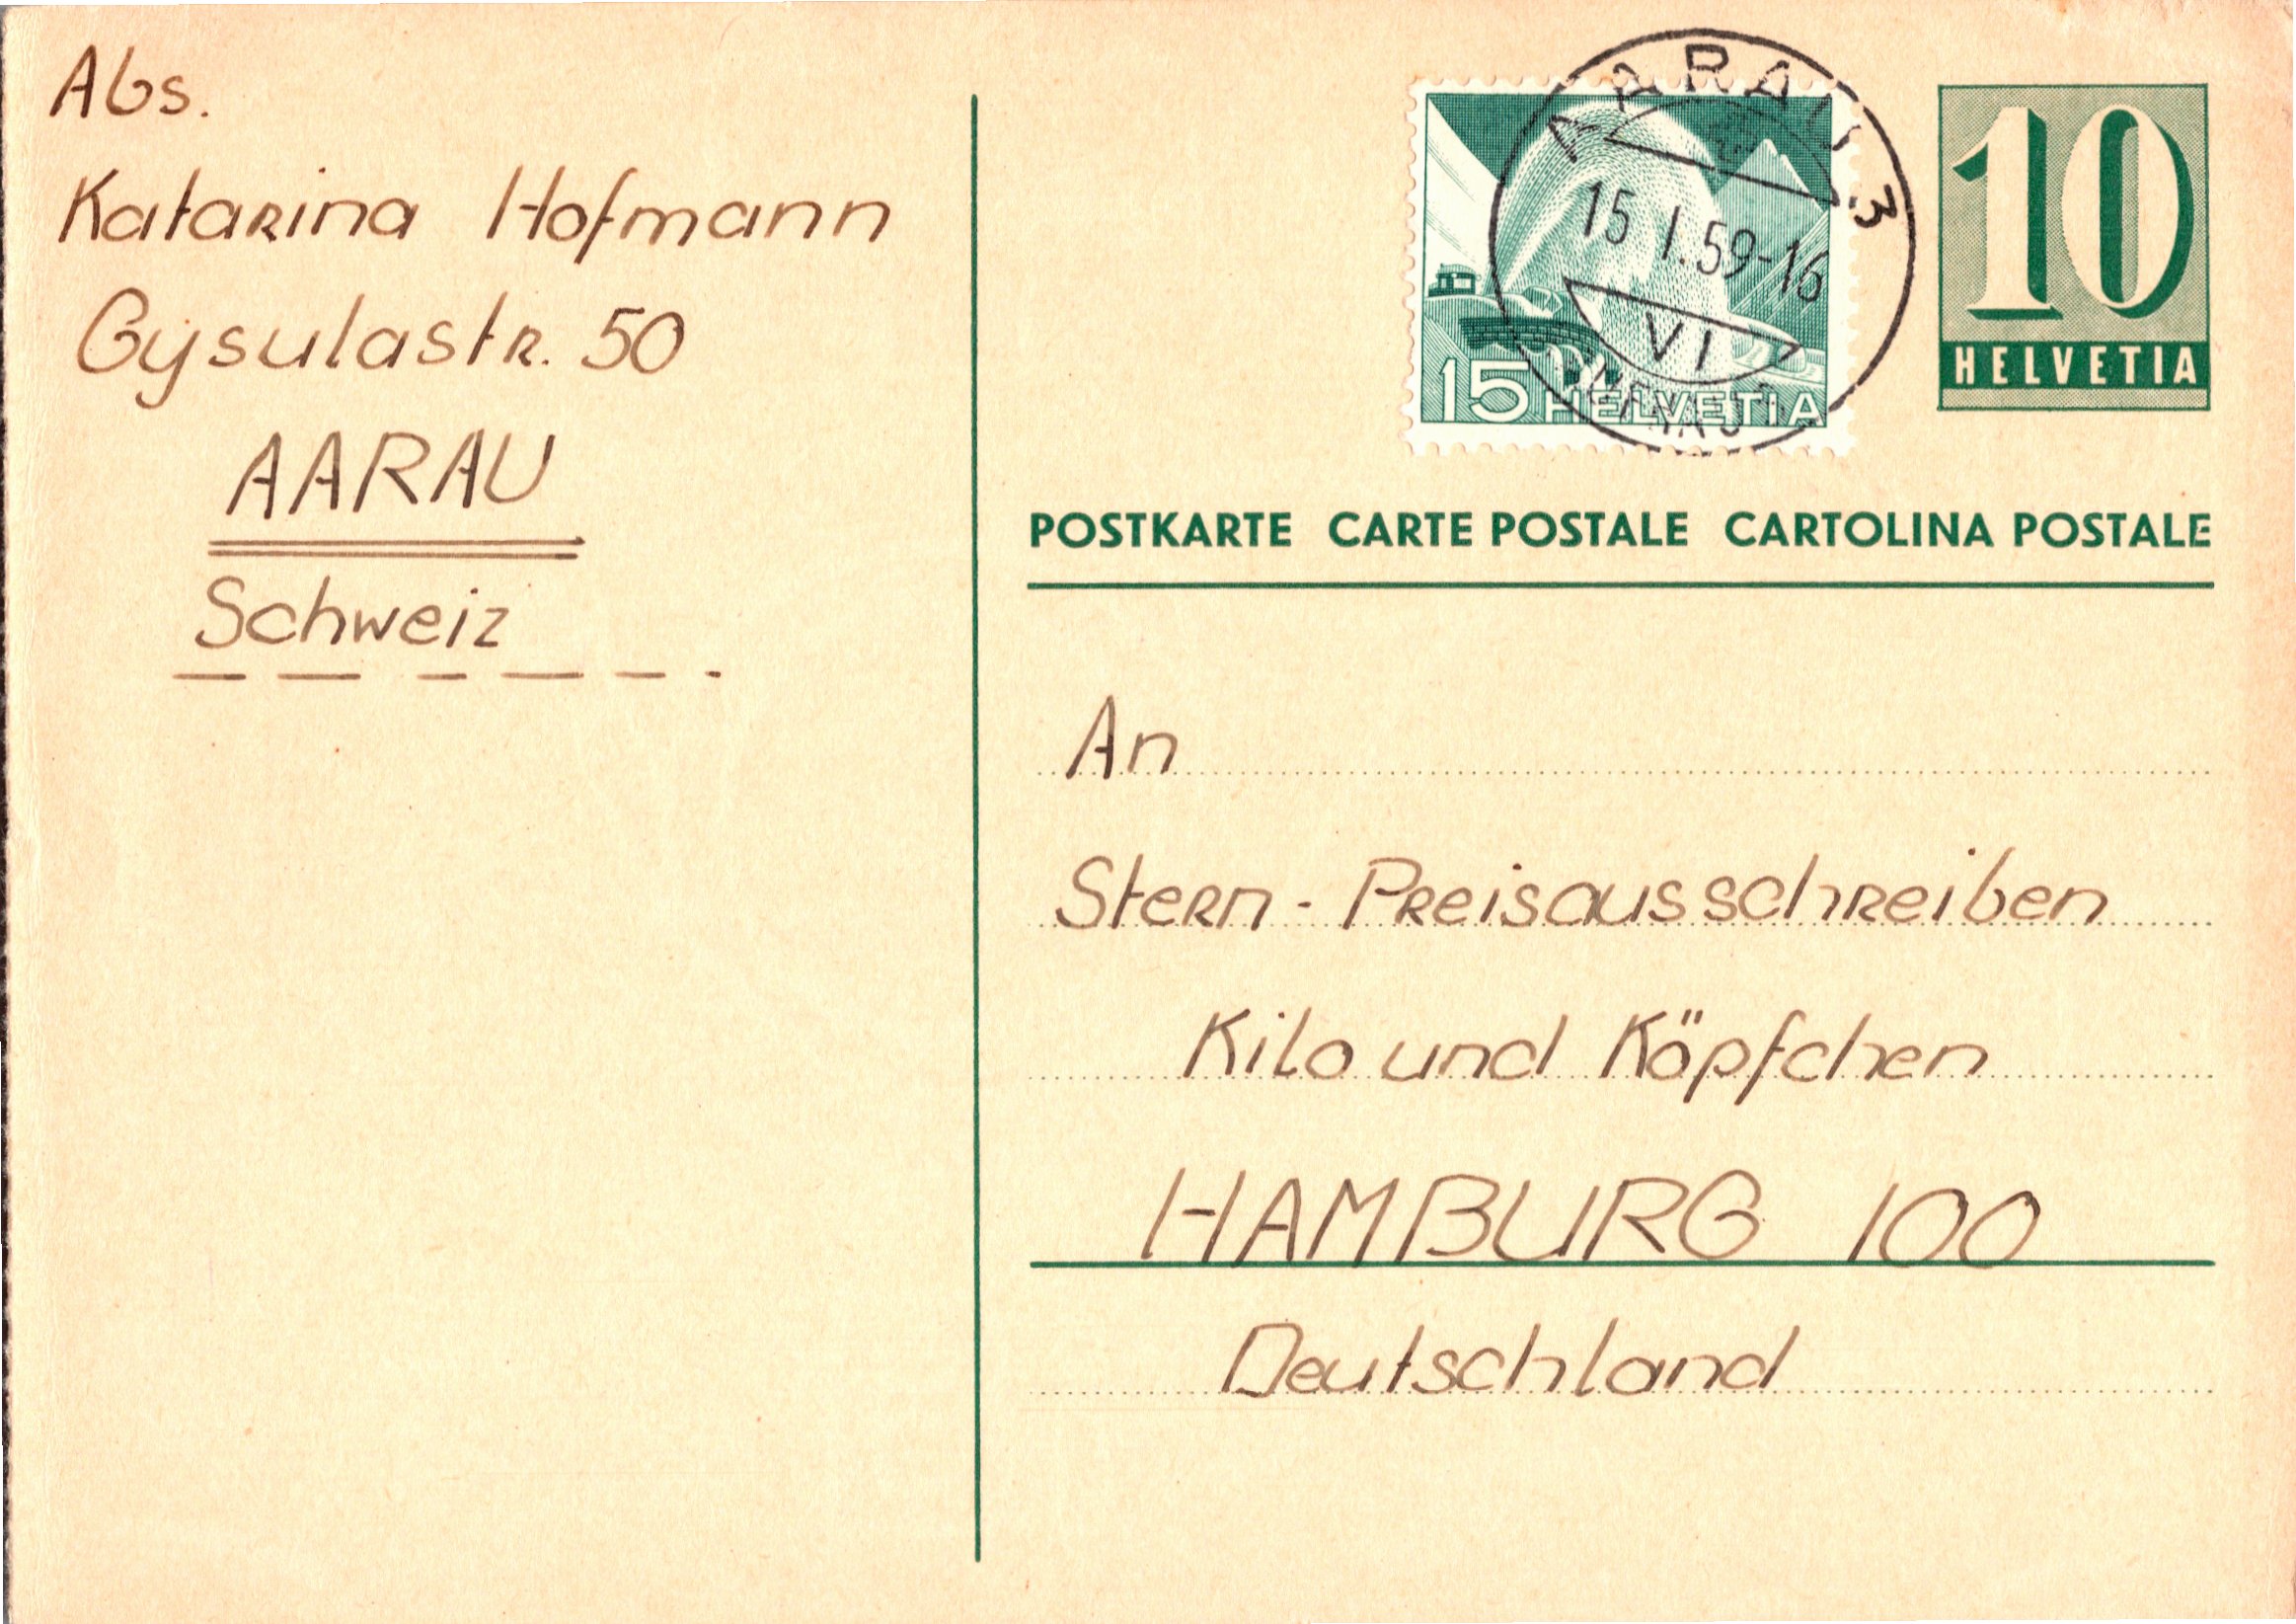 Abs.
Katarina Hofmann
Gysulastr. 50
AARAU
Schweiz
AARAU 3
15 I.59-16
VI
15 HELVETIA
10
HELVETIA
POSTKARTE CARTE POSTALE CARTOLINA POSTALE
An
Stern-Preisausschreiben
Kilo und Köpfchen
HAMBURG 100
Deutschland